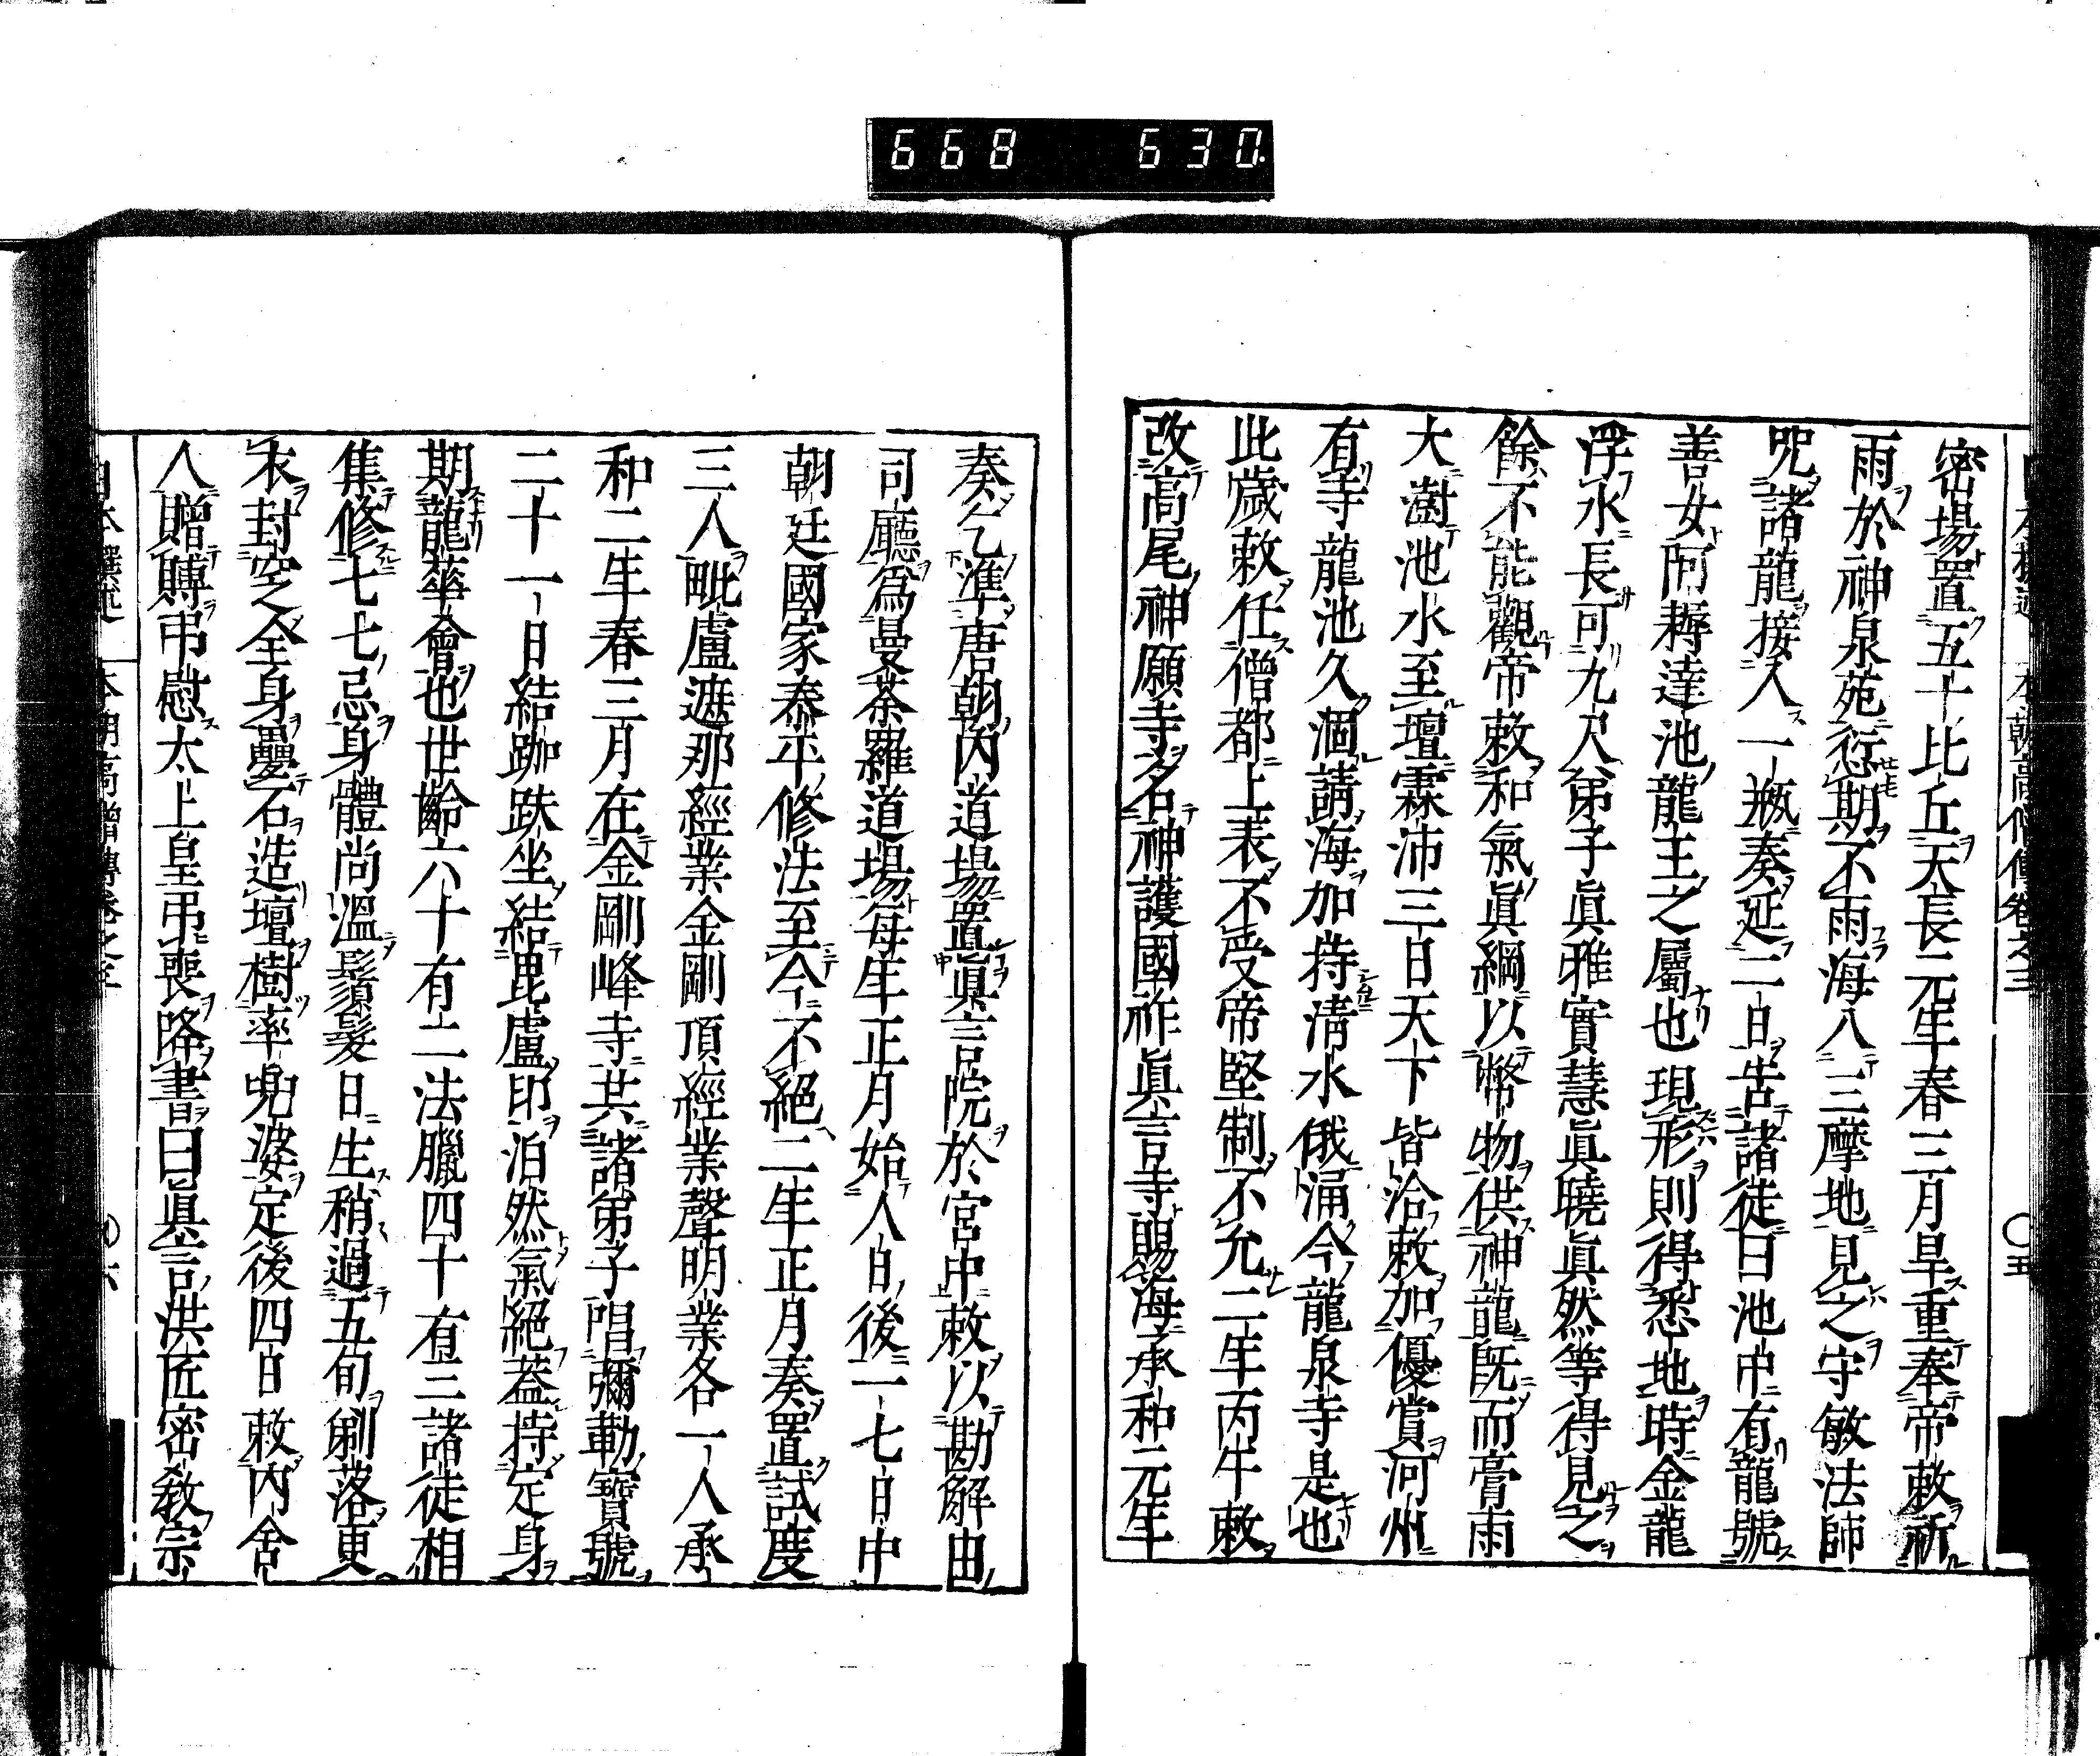 668 630.
密場置五十比丘天長元年春三月旱重奉帝敕祈
雨於神泉苑愆期不雨海八三摩地見之守敏法師
咒諸龍接入一瓶奏延二日告諸徒曰池中有龍號
善女阿耨達池龍王之屬也現形則得悉地時金龍
浮水長可九尺弟子眞雅實慧眞曉眞然等得見之
餘不能觀帝敕和氣眞綱以幣物供神龍既而膏雨
大澍池水至壇霖沛三日天下皆洽敕加優賞河州
有寺龍池久涸請海加持淸水俄涌今龍泉寺是也
此歲敕任僧都上表不受帝堅制不允二年丙午敕
改高尾神願寺名神護國祚眞言寺賜海承和元年
奏乞準唐朝內道場置眞言院於宮中敕以勘解由
司廳爲曼荼羅道場每年正月始八日後一七日中
朝廷國家泰平修法至今不絕二年正月奏置試度
三人毗盧遮那經業金剛頂經業聲明業各一人承
和二年春三月在金剛峰寺共諸弟子唱彌勒寶號
二十一日結跏趺坐結毘盧印泊然氣絕蓋持定身
期龍華會也世齡六十有二法臘四十有三諸徒相
集修七七忌身體尚溫鬚髮日生稍過五旬剃落更
衣封空全身疊石造壇樹率兜婆定後四日敕內舍
人贈賻弔慰太上皇弔喪降書曰眞言洪匠密敎宗